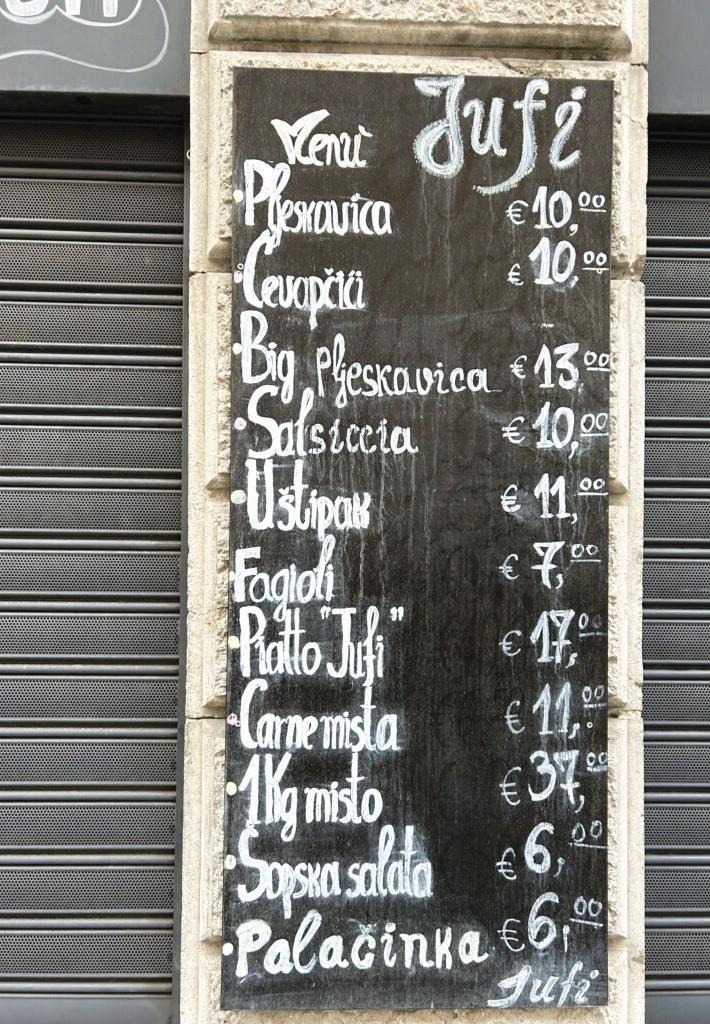 Jufi
Menù
Pljeskavica € 10,00
Čevapčići € 10,00
Big Pljeskavica € 13,00
Salsiccia € 10,00
Uštipak € 11,00
Fagioli € 7,00
Piatto "Jufi" € 17,00
Carne mista € 11,00
1Kg misto € 37,00
Šopska salata € 6,00
Palačinka € 6,00
Jufi